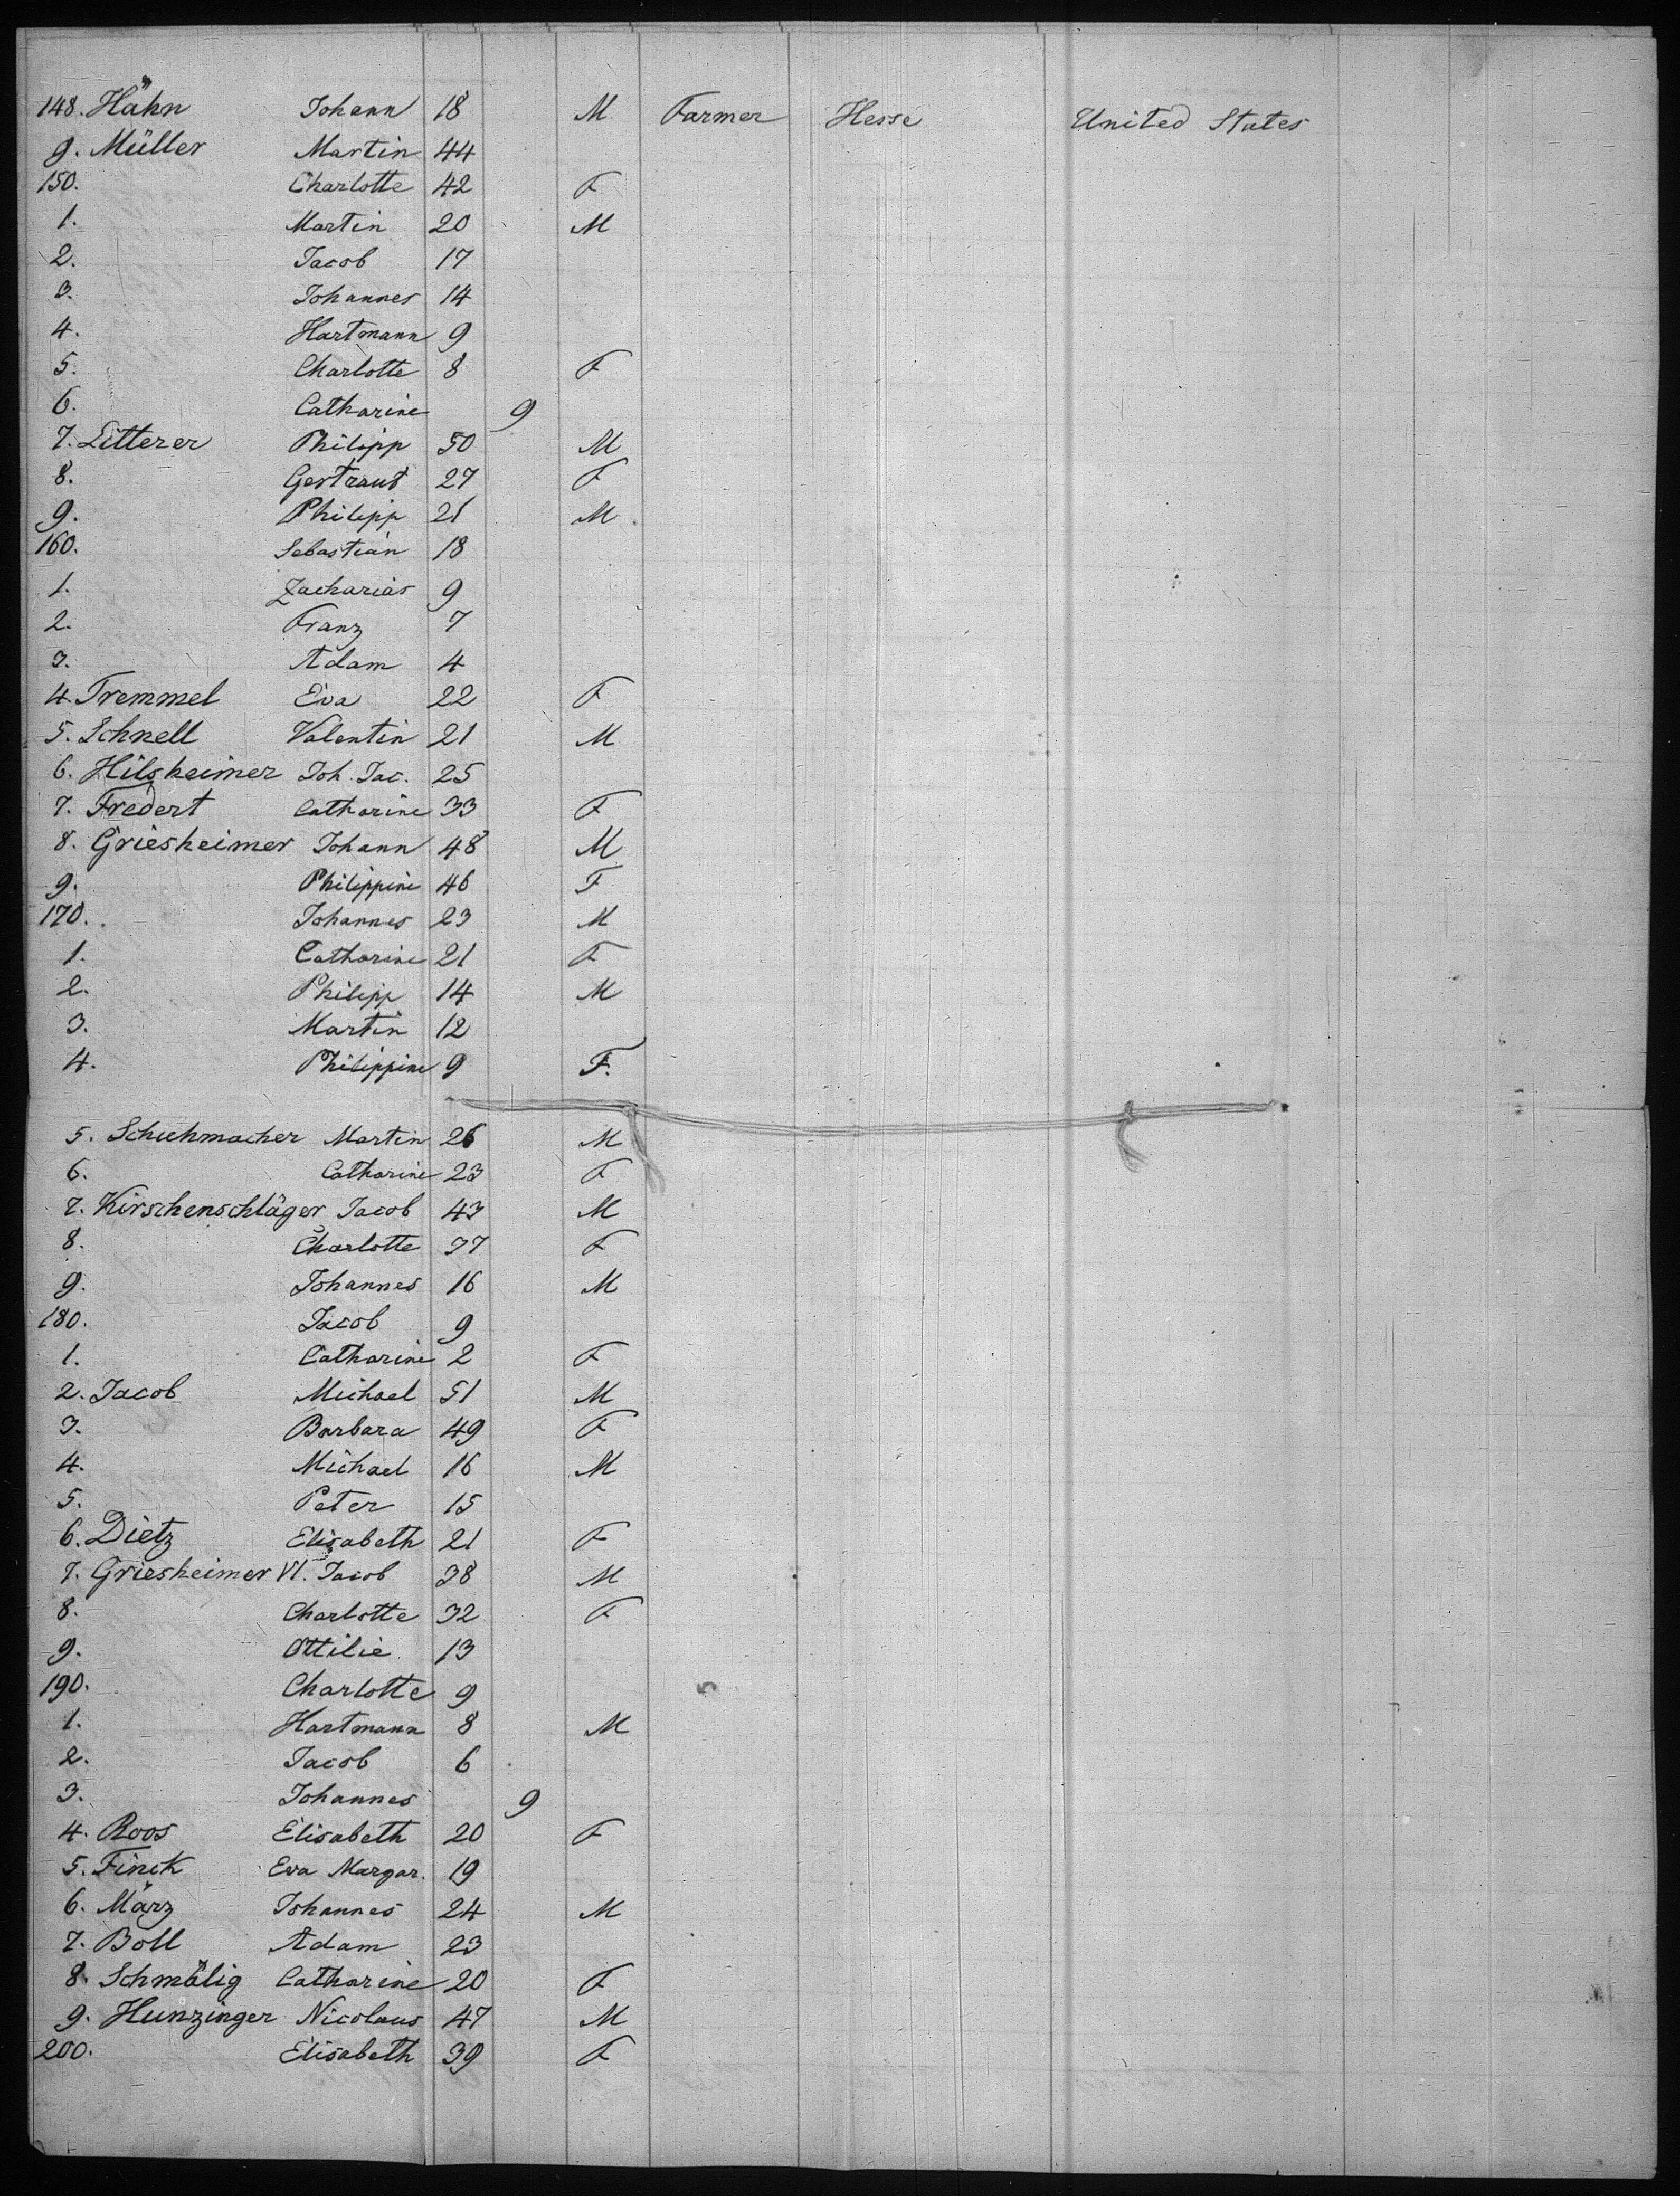 148. Hähn Johann 18 M Farmer Hesse United States
9. Müller Martin 44
150. Charlotte 42 F
1. Martin 20 M
2. Jacob 17
3. Johannes 14
4. Hartmann 9
5. Charlotte 8 F
6. Catharine 9
7. Litterer Philipp 50 M
8. Gertraut 27 F
9. Philipp 21 M
160. Sebastian 18
1. Zacharias 9
2. Franz 7
3. Adam 4
4. Tremmel Eva 22 F
5. Schnell Valentin 21 M
6. Hilsheimer Joh. Jac. 25
7. Fredert Catharine 33 F
8. Griesheimer Johann 48 M
9. Philippine 46 F
170. Johannes 23 M
1. Catharine 21 F
2. Philipp 14 M
3. Martin 12
4. Philippine 9 F.
5. Schuhmacher Martin 26 M
6. Catharine 23 F
7. Kirschenschläger Jacob 43 M
8. Charlotte 37 F
9. Johannes 16 M
180. Jacob 9
1. Catharine 2 F
2. Jacob Michael 51 M
3. Barbara 49 F
4. Michael 16 M
5. Peter 15
6. Dietz Elisabeth 21 F
7. Griesheimer VI. Jacob 38 M
8. Charlotte 32 F
9. Ottilie 13
190. Charlotte 9
1. Hartmann 8 M
2. Jacob 6
3. Johannes 9
4. Roos Elisabeth 20 F
5. Finck Eva Margar. 19
6. März Johannes 24 M
7. Boll Adam 23
8. Schmälig Catharine 20 F
9. Hunzinger Nicolaus 47 M
200. Elisabeth 39 F